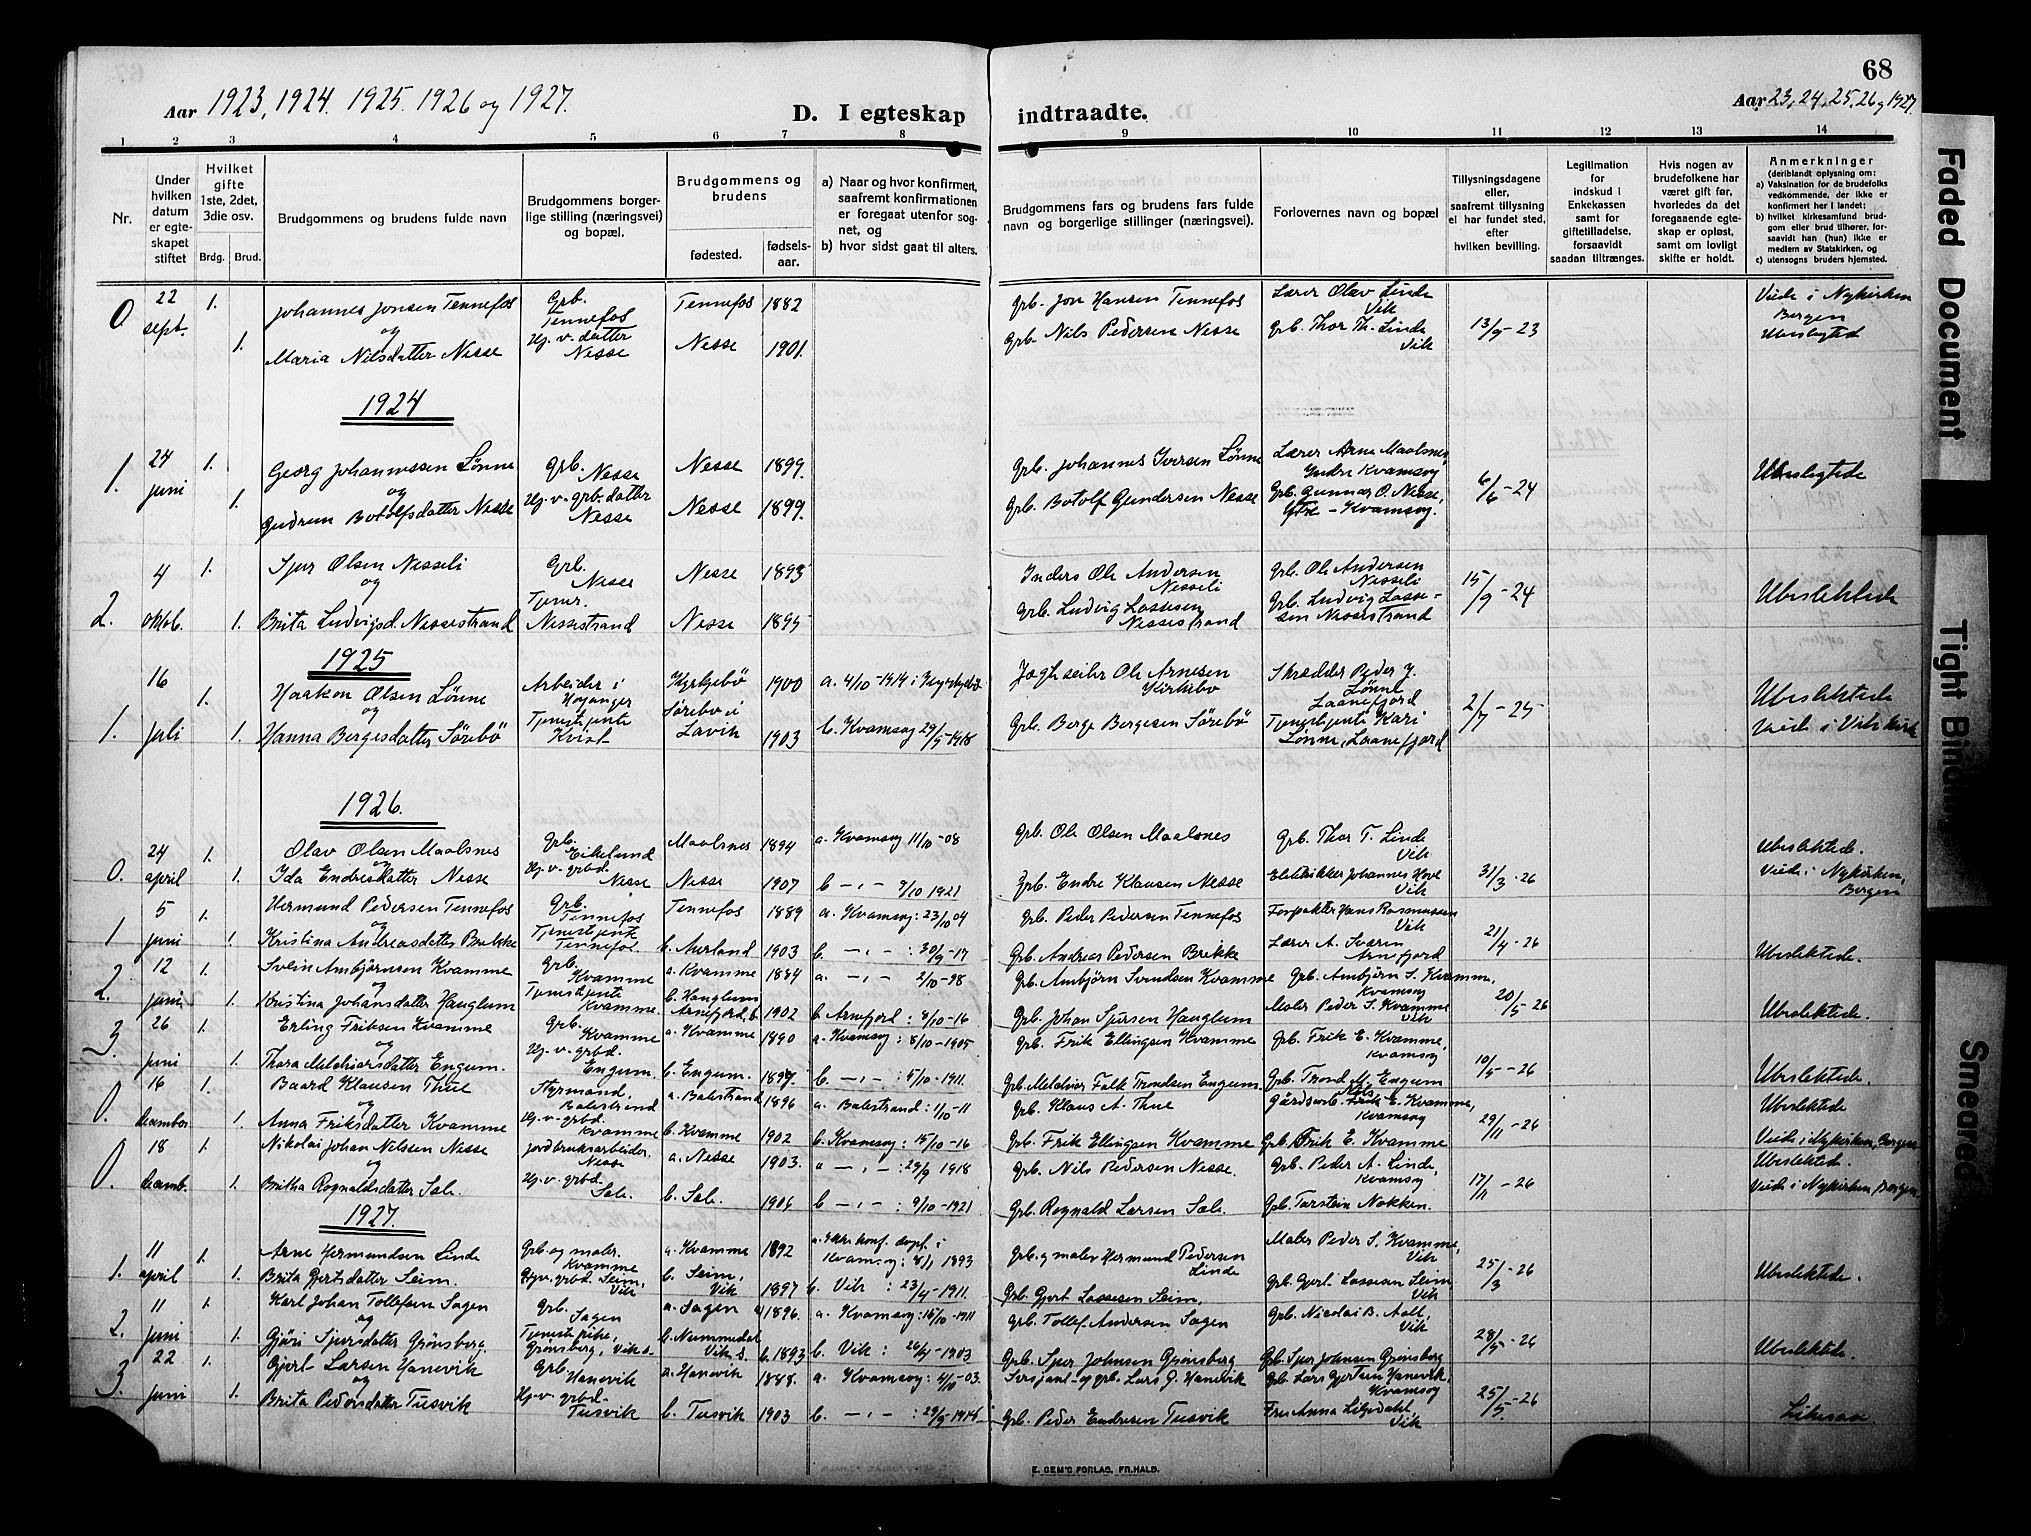 68
Aar 1923, 1924. 1925. 1926 og 1927.
D. I egteskap indtraadte.
Aar 23, 24, 25, 26 og 1927.
1 2 3 4 5 6 7 8 9 10 11 12 13 14
Nr.
Under hvilken datum er egteskapet stiftet
Hvilket gifte 1ste, 2det, 3die osv.
Brdg. Brud.
Brudgommens og brudens fulde navn
Brudgommens borgerlige stilling (næringsvei) og bopæl.
Brudgommens og brudens
fødested.
fødselsaar.
a) Naar og hvor konfirmert, saafremt konfirmationen er foregaat utenfor sognet, og
b) hvor sidst gaat til alters.
Brudgommens fars og brudens fars fulde navn og borgerlige stillinger (næringsvei).
Forlovernes navn og bopæl
Tillysningsdagene eller, saafremt tillysning ei har fundet sted, efter hvilken bevilling.
Legitimation for indskud i Enkekassen samt for giftetilladelse, forsaavidt saadan tiltrænges.
Hvis nogen av brudefolkene har været gift før, hvorledes da det foregaaende egteskap er opløst, samt om lovligt skifte er holdt.
Anmerkninger
(deriblandt oplysning om:
a) Vaksination for de brudefolks vedkommende, der ikke er konfirmert her i landet;
b) hvilket kirkesamfund brudgom eller brud tilhører, forsaavidt han (hun) ikke er medlem av Statskirken, og
c) utensogns bruders hjemsted.
0 22 sept. 1. Johannes Jonsen Tennefos Grb. Tennefos Tennefos 1882 Grb. Jon Hansen Tennefos Lærer Olav Linde Vik 13/9-23 Viede i Nykirken Bergen
og
1. Maria Nilsdatter Nesse Hj. v. datter Nesse Nesse 1901. Grb. Nils Pedersen Nesse Grb. Thor Th. Linde Vik Ubeslegted
1924
1. 24 juni 1. Georg Johannessen Lønne Grb. Nesse Nesse 1899. Grb. Johannes Iversen Lønne Lærer Arne Maalsnes, Indre Kvamsøy 6/6-24 Ubeslegtede
og
1. Gudrun Botolfsdatter Nesse Hj. v. grb. datter Nesse Nesse 1899. Grb. Botolf Gundersen Nesse Grb. Gunnar O. Nesse, Ytre-Kvamsøy.
2. 4 oktob. 1. Sjur Olsen Nesseli Grb. Nesse Nesse 1893 Inders Ole Andersen Nesseli Grb. Ole Andersen Nesseli 15/9-24 Ubeslektede
og
1. Brita Ludvigsd. Nessestrand Tjener. Nessestrand Nesse 1895 Grb. Ludvig Lassesen Nessestrand Grb. Ludvig Lassesen Nessestrand
1925
1. 16 juli 1. Haakon Olsen Lønne Arbeider i Høyanger Kyrkjebö 1900 a. 4/10-1914 i Ole Arnesen Kirkebø Skrædder Peder J. Lønne Laanefjord 2/7-25 Ubeslektede
og
1. Hanna Bergesdatter Sörebö Tjenestjente Kvist Sörebö i Lavik 1903 b. Kvamsøy 29/9-1918 Grb. Berge Bergesen Sörebö Tjenestjente Kari Lønne, Laanefjord Viede i Vik kirke
1926.
0. 24 april 1. Olav Olsen Maalsnes Grb. Eikelund Maalsnes 1894 a. Kvamsøy 11/10-08 Grb. Ole Olsen Maalsnes Grb. Thor T. Linde Vik 31/3-26 Ubeslektede.
og
1. Ida Endresdatter Nesse Hj. v. grbd. Nesse Nesse 1907 b -,- 9/10 1921 Grb. Endre Klausen Nesse Elektrikker Johannes Hove Vik Viede i Nykirken, Bergen
1 5 juni 1. Hermund Pedersen Tennefos Grb. Tennefos Tennefos 1889 a. Kvamsøy: 23/10 04 Grb. Peder Pedersen Tennefos Forpakter Hans Rasmussen Vik 21/4-26
og
1. Kristina Andreasdatter Brekke Tjenestjente Tennefos. b. Aurland 1903 b. -,- : 30/9-17 Grb. Andreas Pedersen Brekke Lærer A. Sværen Arnefjord Ubeslektede.
2. 12 juni 1. Svein Ambjørnsen Kvamme Grb. Kvamme a. Kvamme 1884 a. -,- 2/10-98 Grb. Ambjørn Svendsen Kvamme Grb. Ambjørn S. Kvamme, Kvamsøy 20/5-26
og
1. Kristina Johansdatter Hanglum Tjenestjente Kvamme. b. Hanglum Arnefjord 1902 b. Arnefjord: 8/10-16 Grb. Johan Sjursen Hanglum Maler Peder S. Kvamme Vik Ubeslektede.
3. 26 juni 1. Erling Eriksen Kvamme Grb. Kvamme a. Kvamme 1890 a. Kvamsøy: 8/10-1905 Grb. Erik Ellingsen Kvamme Grb. Erik E. Kvamme, Kvamsøy 10/5-26
og
1. Thora Melchiorsdatter Engum. Hj. v. grbd. Engum. b. Engum. 1897. b. -,- : 5/10-1911. Grb. Melchior Falk Trondsen Engum Grb. Trond M. Engum Ubeslektede.
0. 16 december 1. Baard Klausen Thue Styrmand, Balestrand a. Balestrand 1896 a. Balestrand: 1/10-11 Grb. Klaus A. Thue Gårdsarb. Nils E. Kvamme, Kvamsøy 29/11-26 Ubeslektede
og
1. Anna Eriksdatter Kvamme Hj. v. grbd. Kvamme b. Kvamme 1902 b. Kvamsøy: 15/10-16 Grb. Erik Ellingsen Kvamme Grb. Erik E. Kvamme Viede i Nykirken, Bergen
0. 18 decemb. 1. Nikolai Johan Nilsen Nesse Jordbruksarbeider. Nesse a. Nesse 1903. a -,- : 29/9 1918 Grb. Nils Pedersen Nesse. Grb. Peder A. Linde, Kvamsøy 17/11-26 Ubeslektede.
og
1. Britha Rognaldsdatter Sale. Hj. v. grbd. Sale. b. Sale. 1906 b -,- : 9/10-1921 Grb. Rognald Larsen Sale. Grb. Torstein Nokken. Viede i Nykirken, Bergen,
1927.
1. 11 april 1. Arne Hermundsen Linde Grb. og maler. Kvamme a. Kvamme 1892 a. Ikke konf. døpt i Kvamsøy: 8/1 1893 Grb. og maler Hermund Pedersen Linde Maler Peder S. Kvamme, Vik 25/3-26
1. Brita Gjertsdatter Seim. Hjv. grbd. Seim, Vik b. Seim, Vik 1897 b. Vik: 23/4-1911. Grb. Gjert Lassesen Seim, Grb. Gjert Lassesen Seim Vik Ubeslektede.
2. 11 juni 1. Karl Johan Tollefsen Sagen Grb. Sagen a. Sagen 1896. a. Kvamsøy: 15/10-1911 Grb. Tollef Andersen Sagen Grb. Nicolai B. Vik 28/5-26
og
1. Gjöri Sjursdatter Grönsberg. Tjenestepike, Grönsberg, Vik s. b. Nummedal Vik s. b. 1893 b. Vik: 26/4-1903 Grb. Sjur Johnsen Grönsberg Grb. Sjur Johnsen Grönsberg Ubeslektede.
3. 22 juni 1. Gjert Larsen Hanevik Grb. Hanevik a. Hanevik 1888. a. Kvamsøy: 4/10-03. Sersjant og grb. Lars G. Hanevik Grb. Lars Gjertsen Hanevik, Kvamsøy 25/5-26
og
1. Brita Pedersdatter Tusvik Hj. v. grbd. Tusvik b. Tusvik 1903 b. -,- : 29/9-1918 Grb. Peder Endresen Tusvik Fru Anna Vik
E. SEM'S FORLAG, FR.HALD.
Faded Document
Tight Binding
Smeared